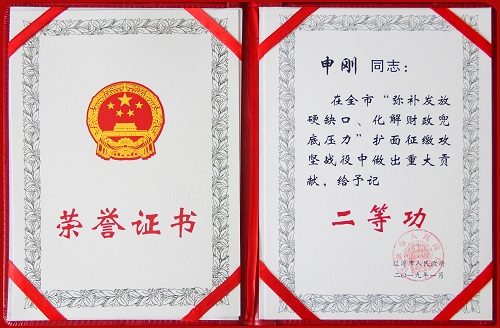 荣誉证书
申刚 同志：
在全市“弥补发放
硬缺口、化解财政兜
底压力”扩面征缴攻
坚战役中做出重大贡
献，给予记
二等功
辽源市人民政府
二〇一九年一月